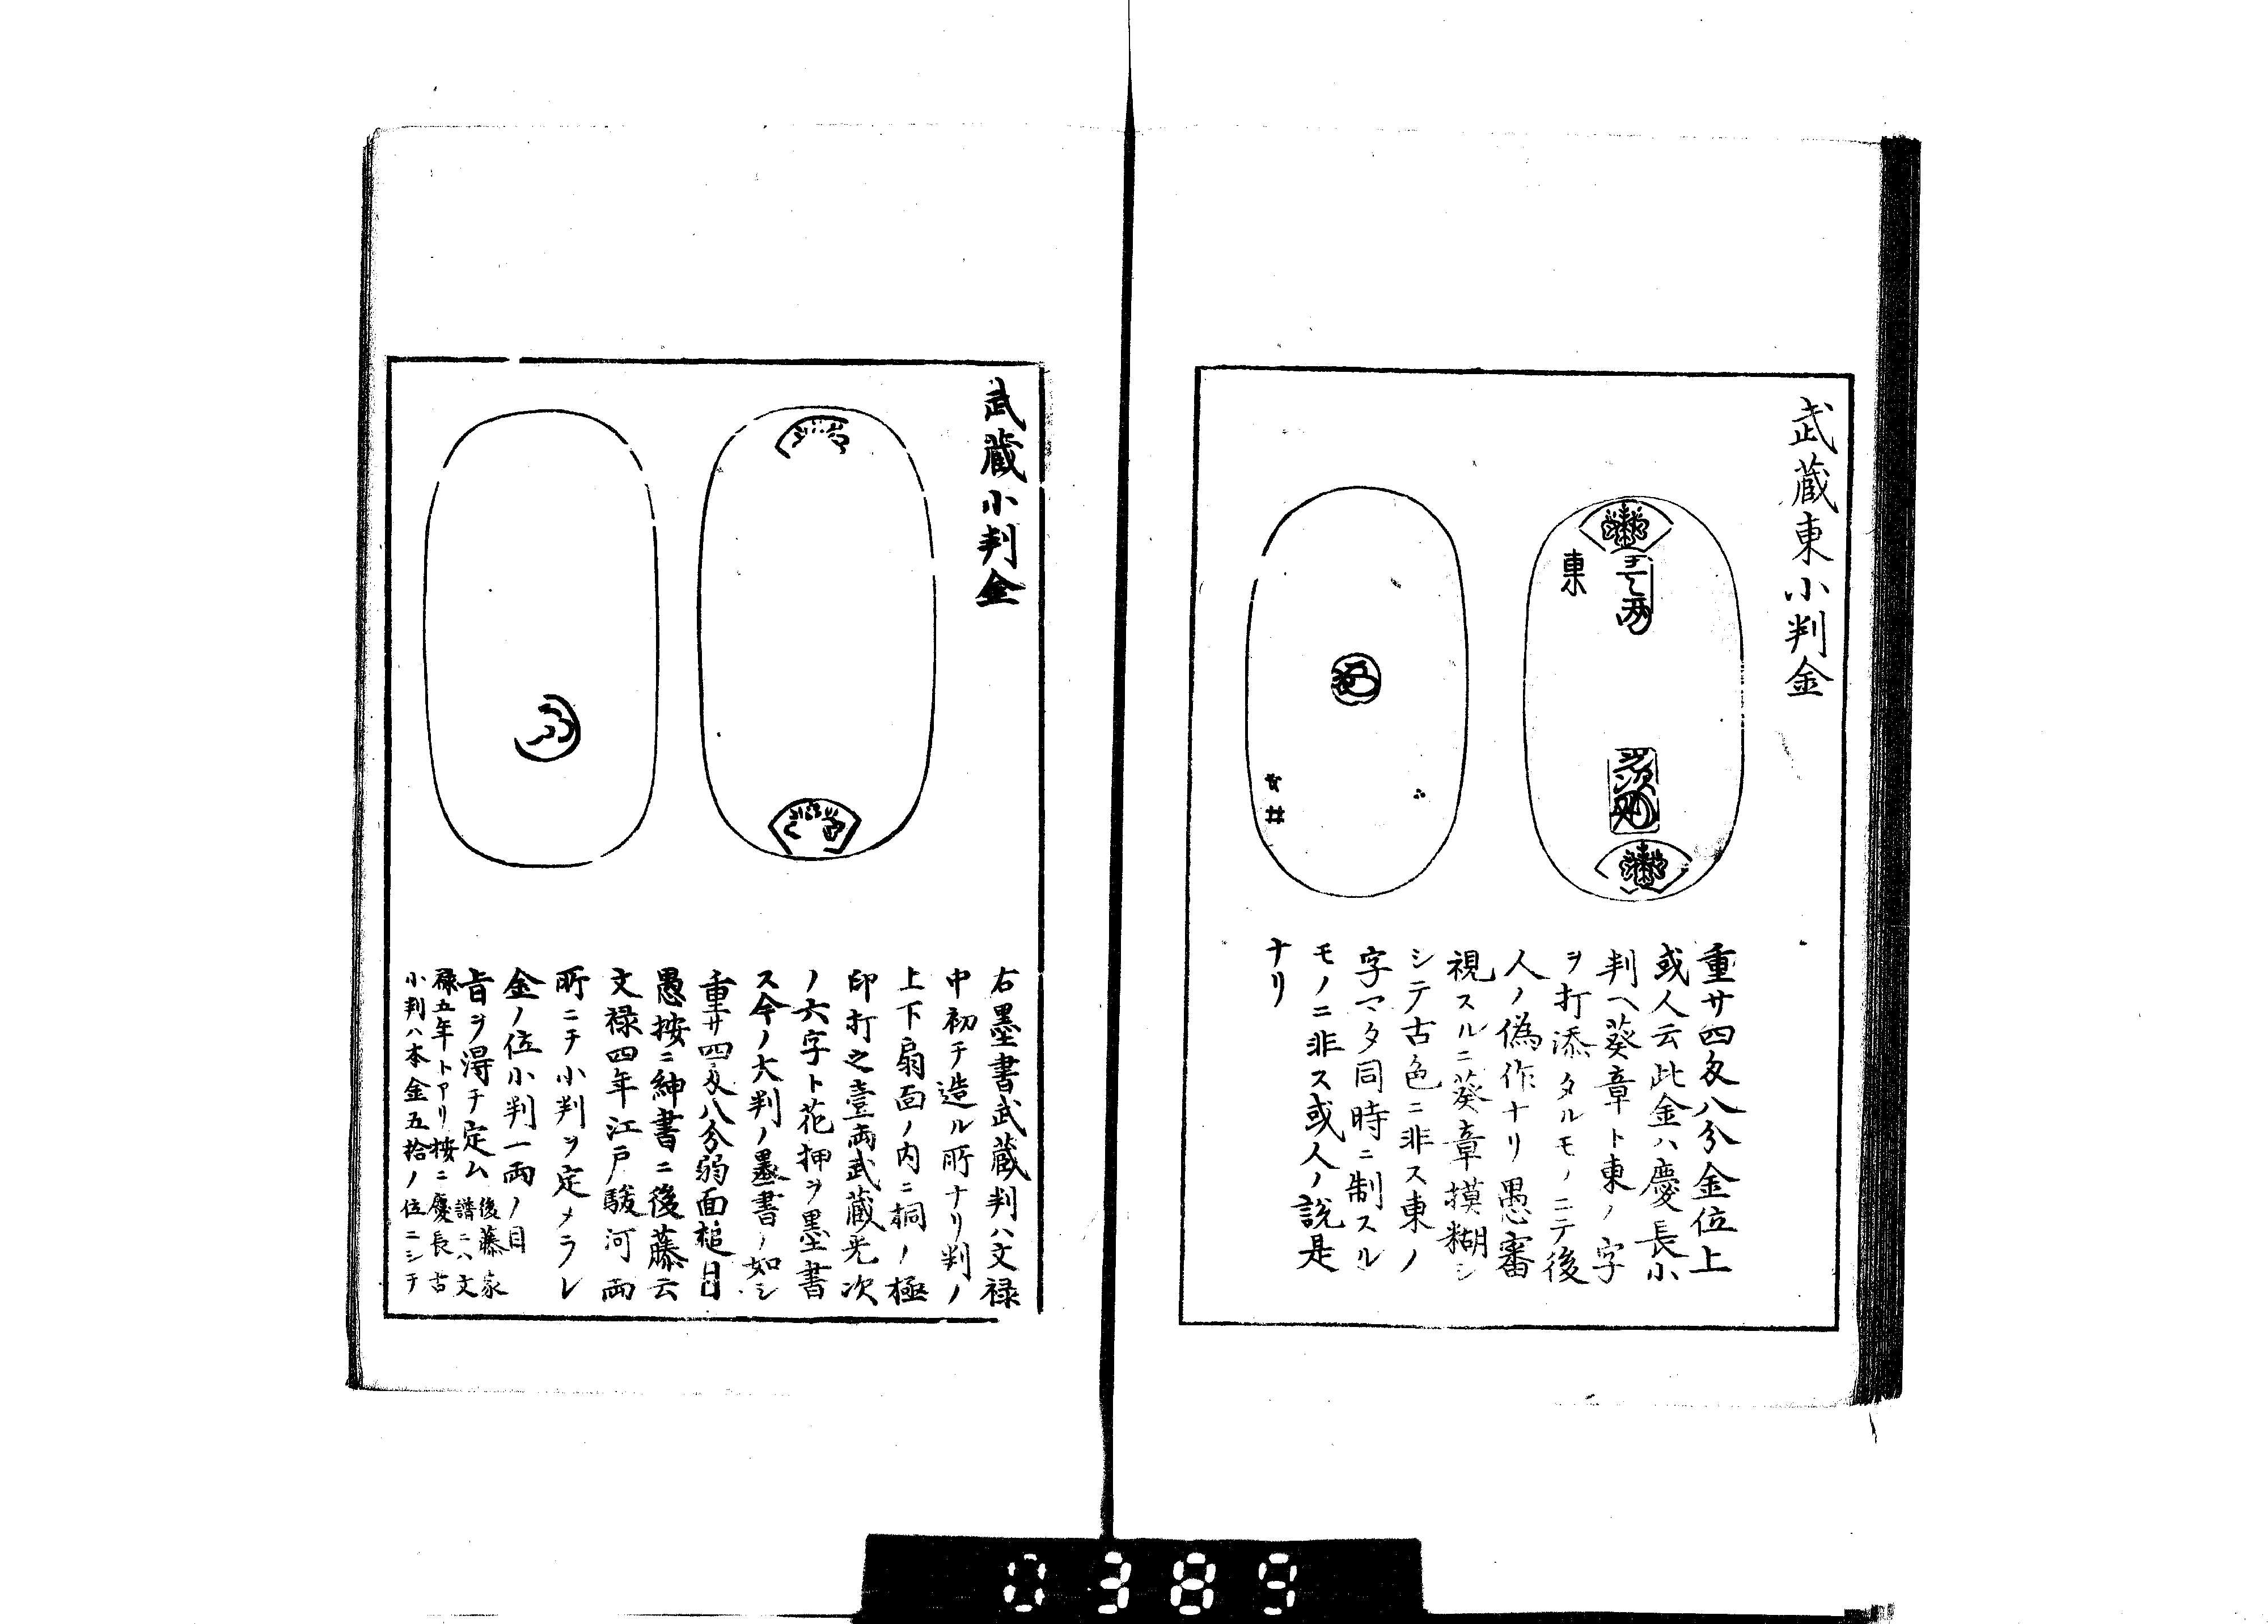 武蔵東小判金
東
壱両
重サ四匁八分金位上
或人云此金ハ慶長小
判ヘ葵章ト東ノ字
ヲ打添タルモノニテ後
人ノ偽作ナリ愚審
視スルニ葵章摸糊シ
シテ古色ニ非ス東ノ
字マタ同時ニ制スル
モノニ非ス或人ノ説是
ナリ
武蔵小判金
右墨書武蔵判ハ文禄
中初チ造ル所ナリ判ノ
上下扇面ノ内ニ桐ノ極
印打之壹両武蔵光次
ノ六字ト花押ヲ墨書
ス今ノ大判ノ墨書ノ如シ
重サ四匁八分弱面槌目
愚按ニ紳書ニ後藤云
文禄四年江戸駿河両
所ニチ小判ヲ定メラレ
金ノ位小判一両ノ目
旨ヲ淂チ定ム
後藤家
譜ニハ文
禄五年トアリ按ニ慶長古
小判ハ本金五拾ノ位ニシチ
0389